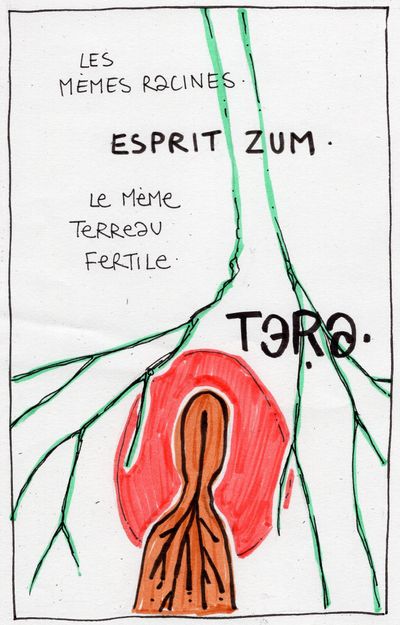 LES
MÈMES RaCINES.
ESPRIT ZUM.
Le MèMe
TeRReaU
FeRTILe.
TəṚə.